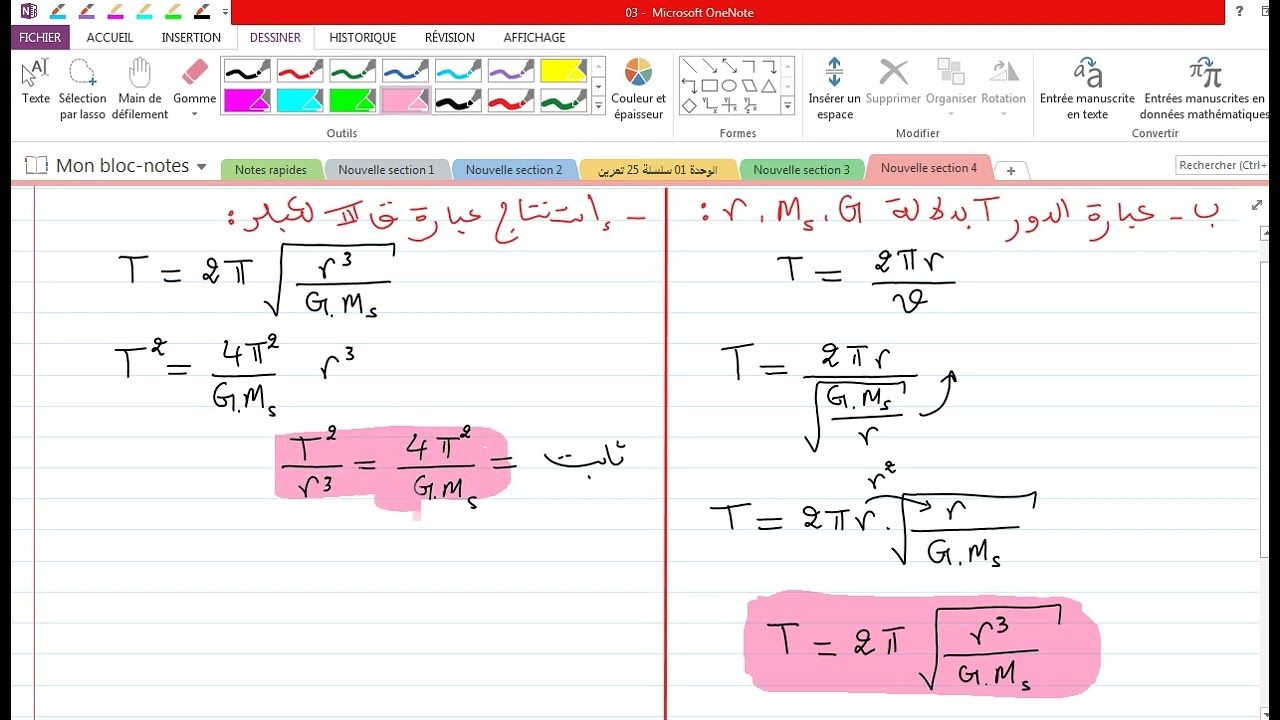 03 - Microsoft OneNote
?
FICHIER ACCUEIL INSERTION DESSINER HISTORIQUE RÉVISION AFFICHAGE
Texte Sélection par lasso Main de défilement Gomme Couleur et épaisseur Insérer un espace Supprimer Organiser Rotation Entrée manuscrite en texte Entrées manuscrites en données mathématiques
Outils Formes Modifier Convertir
Mon bloc-notes Notes rapides Nouvelle section 1 Nouvelle section 2 الوحدة 01 سلسلة 25 تمرين Nouvelle section 3 Nouvelle section 4 +
Rechercher (Ctrl+
ب - عبارة الدور T بدلالة r, Ms, G :
T = 2πr / v
T = 2πr / √(G.Ms / r)
r²
T = 2πr . √(r / G.Ms)
T = 2π √(r³ / G.Ms)
- إستنتاج عبارة ق III لكبلر :
T = 2π √(r³ / G.Ms)
T² = 4π² / G.Ms r³
T² / r³ = 4π² / G.Ms = ثابت